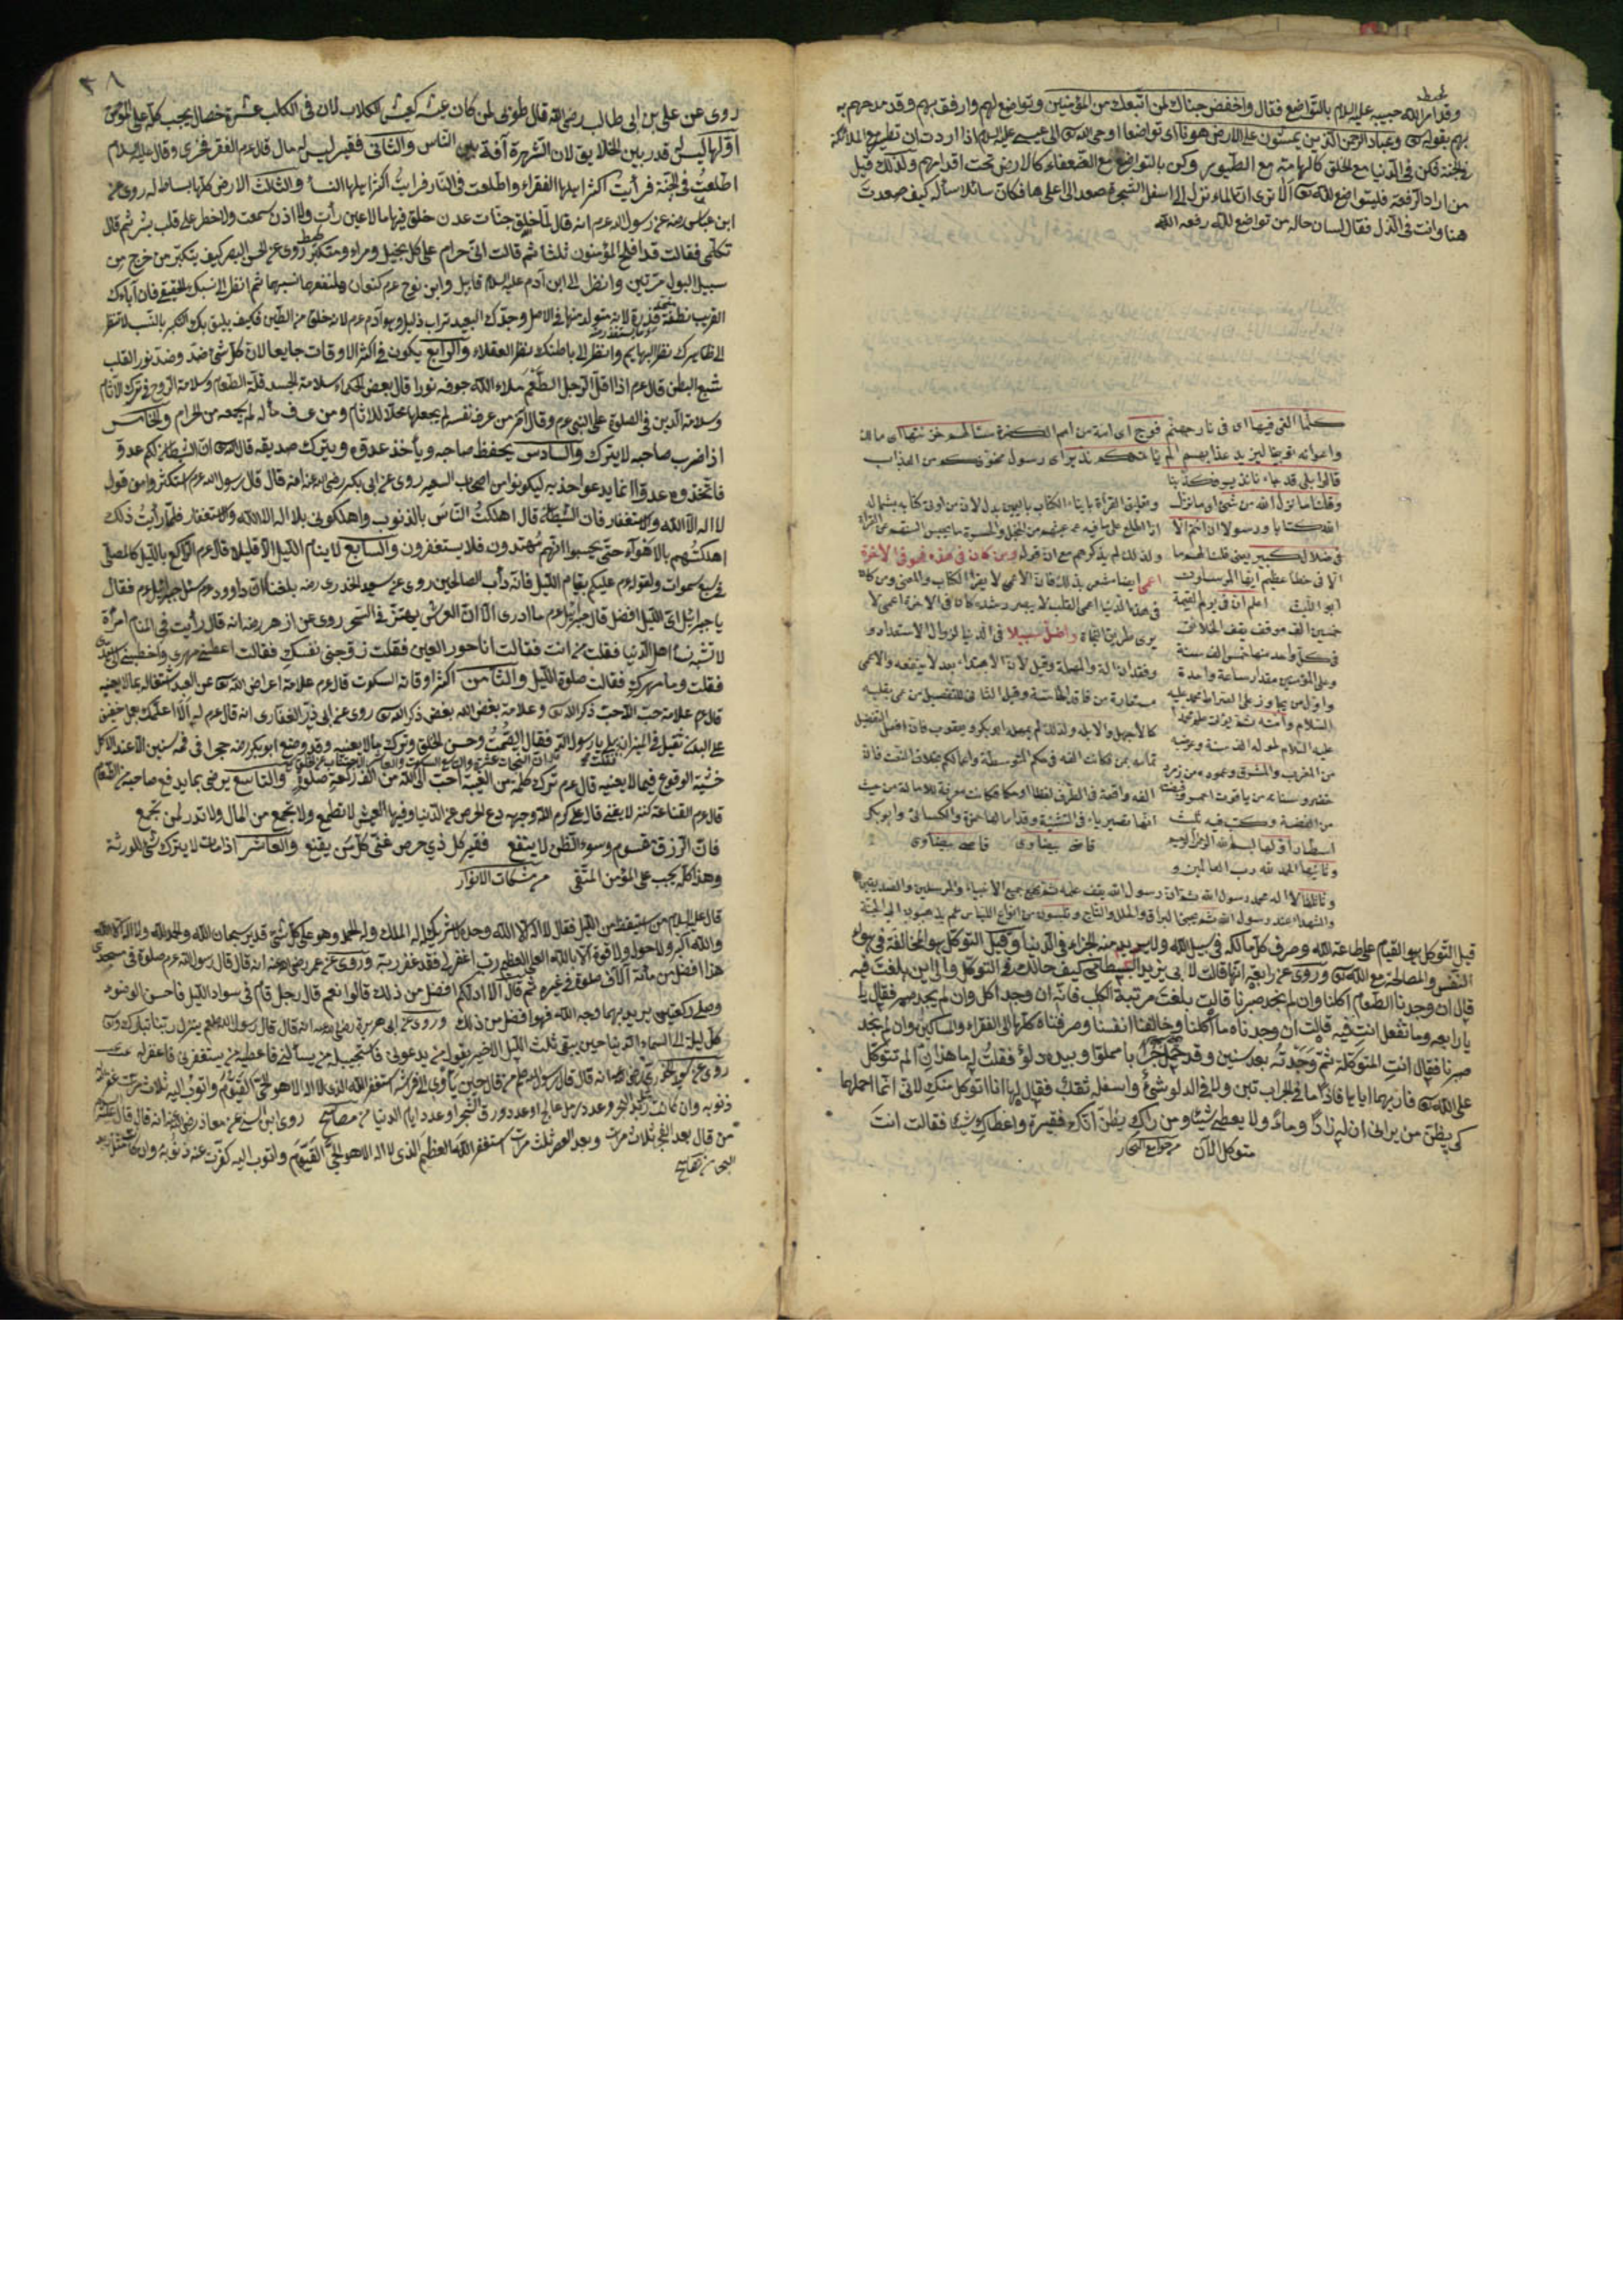 وقد امر الله حبيبه عليه السلام بالتواضع فقال واخفض جناحك لمن اتبعك من المؤمنين وتواضع لهم وارفق بهم وقد مدحهم به
بهم بقوله تعالى وعباد الرحمن الذين يمشون على الارض هونا اى تواضعا اوحى الله تعالى الى عيسى عليه السلام اذا اردت ان تطير مع الملائكة
فى الجنة فكن فى الدنيا مع الخلق كالهامة مع الطيور وكن بالتواضع مع الضعفاء كالارض تحت اقدامهم ولذلك قيل
من اراد الرفعة فليتواضع لله تعالى الا ترى ان الماء نزل الى اسفل الشجرة صعد الى اعلاها فكان سائلا سأله كيف صعدت
هنا وانت فى الذل فقال لسان حاله من تواضع لله رفعه الله
كلما القى فيها اى فى نار جهنم فوج اى امة من امم الكفرة سالهم خزنتها اى مالك
واعوانه توبيخا ليزيد عذابهم الم ياتكم نذير اى رسول مخوف من العذاب
قالوا بلى قد جاءنا نذير فكذبنا
وقلنا ما نزل الله من شئ اى ما نزل
الله كتابا ورسولا ان انتم الا
فى ضلال كبير يعنى قلنا لهم ما
الا فى خطا عظيم ايها المرسلون
ابو الليث اعلم ان فى يوم القيمة
خمسين الف موقف يقف الخلائق
فى كل واحد منها خمس الف سنة
وعلى المؤمنين مقدار ساعة واحدة
واول من يجاوز على الصراط محمد عليه
السلام وامته
عليه السلام طوله الف سنة وعرضه
من المغرب والمشرق وعموده من زمرد
خضر وسنانه من ياقوت احمر وقبضته
من الفضة وكتب فيه ثلث
اسطار اولها بسم الله الرحمن الرحيم
وثانيها الحمد لله رب العالمين و
وثالثها لا اله محمد رسول الله ثم ان رسول الله يقف عليه ثم يجئ جميع الانبياء والمرسلين والصديقين
والشهداء عند رسول الله ثم يجئ البراق والحلل والتاج وتلبسون من انواع اللباس ثم يذهبون الى الجنة
وتعليق القراءة بايتاء الكتاب باليمين يدل لان من اوتى كتابه بشماله
اذا اطلع على ما فيه غشيهم من الخجل والحيرة ما يحبس السنتهم عن القراءة
ولذلك لم يذكرهم مع ان قوله ومن كان فى هذه فهو فى الاخرة
اعمى ايضا مشعر بذلك فان الاعمى لا يقرأ الكتاب والمعنى ومن كان
فى هذه الدنيا اعمى القلب لا يبصر رشده كان فى الاخرة اعمى لا
يرى طريق النجاة واضل سبيلا فى الدنيا لزوال الاستعداد و
وفقدان الالة والمهلة وقيل لان الاهتداء بعد لا ينفعه والاعمى
مستعارة من فاقد الحاسة وقيل الثانى للتفضيل من عمى بقلبه
كالاجهل والابله ولذلك لم يمله ابو بكر ويعقوب فان افعل التفضيل
تمامه بمن فكانت الفه فى حكم المتوسطة واعمالكم بخلاف النعت فان
الفه واقعة فى الطرف لفظا او حكما فكانت معرفة للامالة من حيث
انها تصير ياء فى التثنية وقد امالها حمزة والكسائى وابو بكر
قاضى بيضاوى قاضى بيضاوى
قيل التوكل هو القيام على طاعة الله وصرف كل مالكه فى سبيل الله ولا يريد منه الجزاء فى الدنيا وقيل التوكل هو المخالفة فى هواء
النفس والمصالحة مع الله تعالى وروى عن رابعة انها قالت لابى يزيد البسطامى كيف حالك فى التوكل والى اين بلغت فيه
قال ان وجدنا الطعام اكلنا وان لم نجد صبرنا قالت بلغت مرتبة الكلب فانه ان وجد اكل وان لم يجد صبر فقال يا
يا رابعه وما تفعل انت فيه قالت ان وجدناه ما اكلنا وخالفنا انفسنا وصرفناه كلها الى الفقراء والمساكين وان لم نجد
صبرنا فقال انت المتوكلة ثم وجدته بعد سنين وقد حمل جرابا مملوا وبيده دلو فقلت له ما هذا ان الم تتوكل
على الله تعالى فارنيهما ايايا فاذا ما فى الجراب تبن ولا فى الدلو شئ واسفله ثقبة فقال لها انا اتوكل منك لانى انما احملهما
كى يظن من يرانى ان لى زادا وماء ولا يعطى شيئا ومن راك يظن انك فقيرة واعطاك شيئا فقالت انت
متوكل الآن من جوامع البحار
٢٨
روى عن على بن ابى طالب رضى الله قال طوبى لمن كان عيشه كعيش الكلاب لان فى الكلب عشرة خصال يجب كله على المؤمن
اولها ليس له قدر بين الخلايق لان الشهرة آفة بين الناس والثانى فقير ليس له مال قال عم الفقر فخرى وقال عليه السلام
اطلعت فى الجنة فرأيت اكثر اهلها الفقراء واطلعت فى النار فرايت اكثر اهلها النساء والثالث الارض كلها بساط له روى عن
ابن عباس رضه عن رسول الله عم انه قال لما خلق جنات عدن خلق فيها ما لا عين رأت ولا اذن سمعت ولا خطر على قلب بشر ثم قال
تكلمى فقالت قد افلح المؤمنون ثلثا ثم قالت انى حرام على كل بخيل ومراء ومتكبر روى عن الحسن البصر كيف يتكبر من خرج من
سبيل البول مرتين وانظر الى ابن آدم عليه السلام قابيل وابن نوح عم كنعان هل نفعهما نسبهما ثم انظر الى نسبك الحقيقى فان آباءك
القريب نطفة قذرة لانه متولد منها فى الاصل وجدك البعيد تراب ذليل وهو ادم عم لانه خلق من الطين فكيف يليق بك التكبر بالنسب لا تنظر
الى ظاهرك نظر البهايم وانظر الى باطنك نظر العقلاء والرابع يكون فى اكثر الاوقات جايعا لان كل شئ ضد وضد نور القلب
شبع البطن قال عم اذا اقل الرجل الطعم ملاء الله جوفه نورا قال بعض الحكماء سلامة الجسد قلة الطعام وسلامة الروح فى ترك الآثام
وسلامة الدين فى الصلوة على النبى عم وقال آخر من عرف نفسه لم يجعلها محلا للاثام ومن عرف ماله لم يجمعه من الحرام والخامس
اذا ضرب صاحبه لا يترك والسادس يحفظ صاحبه ويأخذ عدوه ويترك صديقه قال الله تعالى ان الشيطان لكم عدو
فاتخذوه عدوا انما يدعوا حزبه ليكونوا من اصحاب السعير روى عن ابى بكر رضى الله عنه انه قال قال رسول الله عم استكثروا من قول
لا اله الا الله والاستغفار فان الشيطان قال اهلكت الناس بالذنوب واهلكونى بلا اله الا الله والاستغفار فلما رأيت ذلك
اهلكتهم بالاهواء حتى يحسبوا انهم مهتدون فلا يستغفرون والسابع لا ينام الليل الا قليلا قال عم الراكع بالليل كالمصلى
فى سبع سموات ولقوله عم عليكم بقيام الليل فانه دأب الصالحين روى عن سعيد الخدرى رضه بلغنا ان داوود عم سئل جبرائيل عم فقال
يا جبرائيل اى الليل افضل قال جبرائيل عم ما ادرى الا ان العرش يهتز فى السحر روى عن ازهر رضه انه قال رأيت فى المنام امرأة
لا تشبه نساء اهل الدنيا فقلت من انت فقالت انا حور العين فقلت زوجنى نفسك فقالت اعطنى مهرى واخطبنى الى سيدى
فقلت وما مهرك فقالت صلوة الليل والثامن اكثر اوقاته السكوت قال عم علامة اعراض الله تعالى عن العبد اشتغاله بما لا يعنيه
قال عم علامة حب الله حب ذكر الله تعالى وعلامة بغض الله بغض ذكر الله تعالى روى عن ابى ذر الغفارى انه قال عم له الا اعلمك بعمل خفيف
على البدن ثقيل فى الميزان بلى يا رسول الله فقال الصمت وحسن الخلق وترك ما لا يعنيه وقد وضع ابو بكر رضه حجرا فى فمه سنين الا عند الاكل
خشية الوقوع فيما لا يعنيه قال عم ترك كلمة من الغيبة احب الى الله من الف ركعة صلوة والتاسع يرضى بما يدفع صاحبه من الطعام
قال عم القناعة كنز لا يفنى قال على كرم الله وجهه دع الحرص عن الدنيا وفيها العيش لا تطمع ولا تجمع من المال ولا تدر لمن تجمع
فان الرزق مقسوم وسوء الظن لا ينفع فقير كل ذى حرص غنى كل من يقنع والعاشر اذا مات لا يترك شئ للورثة
وهذا كله يجب على المؤمن المتقى من مشكات الانوار
قال عليه السلام من استيقظ من الليل فقال لا اله الا الله وحده لا شريك له له الملك وله الحمد وهو على كل شئ قدير سبحان الله والحمد لله ولا اله الا الله
والله اكبر ولا حول ولا قوة الا بالله العلى العظيم رب اغفر لى فقد غفر ربه وروى عن عمر رضى الله عنه انه قال قال رسول الله عم صلوة فى مسجدى
هذا افضل من مائة آلاف صلوة فى غيره ثم قال الا ادلكم افضل من ذلك قالوا نعم قال رجل قام فى سواد الليل فاحسن الوضوء
وصلى ركعتين يريد بهما وجه الله فهو افضل من ذلك وروى عن ابى هريرة رضى الله عنه انه قال قال رسول الله صلعم ينزل ربنا تبارك وتعالى
كل ليلة الى السماء الدنيا حين يبقى ثلث الليل الاخير يقول من يدعونى فاستجيب له من يسألنى فاعطيه من يستغفرنى فاغفر له
روى عن الخدرى رضى الله عنه انه قال قال رسول الله صلعم من قال حين يأوى الى فراشه استغفر الله الذى لا اله الا هو الحى القيوم واتوب اليه ثلاث مرات غفر الله
ذنوبه وان كانت مثل زبد البحر وعدد رمل عالج او عدد ورق الشجر او عدد ايام الدنيا من مصابيح روى ابن السنى عن معاذ رضى الله عنه انه قال قال عليه السلام
من قال بعد الفجر ثلاث مرات وبعد العصر ثلث مرات استغفر الله العظيم الذى لا اله الا هو الحى القيوم واتوب اليه كفرت عنه ذنوبه وان كانت مثل زبد
البحر من مصابيح